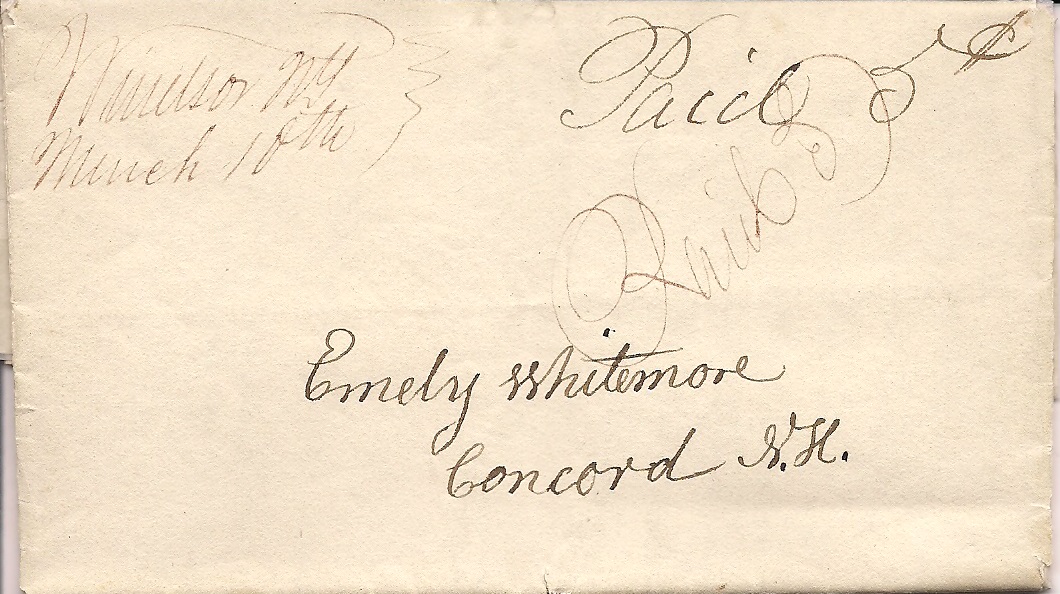 Windsor NH
March 10th
Paid 5¢
Paid 5
Emely Whitemore
Concord N.H.